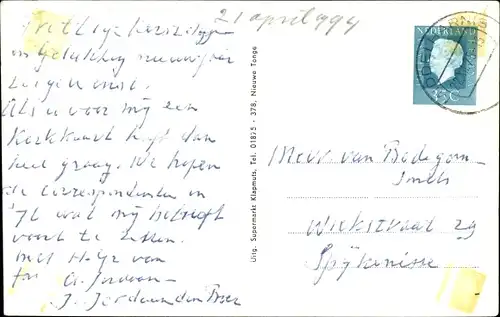 21 april 1994
Prettige kerstdagen
en gelukkig nieuwjaar
toegewenst.
Als u voor mij een
Kerkkaart heeft dan
heel graag. We hopen
de correspondentie in
'76 wat mij betreft
voort te zetten.
met
fam. A. Jordaan-
J. Jordaan den Boer
Uitg. Supermarkt Klapmuts, Tel. 01875 - 378, Nieuwe Tonge
NEDERLAND
35c
Mevr. van Bodegom-
Smels
Wiekstraat 29
Spijkenisse